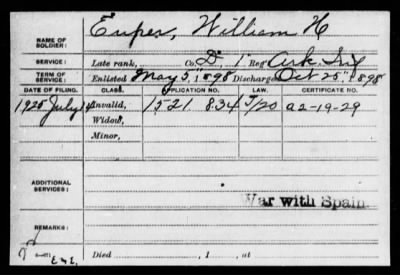 NAME OF SOLDIER: Euper, William H
SERVICE: Late rank, Co. D, 1 Reg Ark. Inf
TERM OF SERVICE: Enlisted May 5", 1898 Discharged Oct 25", 1898
DATE OF FILING. CLASS. APPLICATION NO. LAW. CERTIFICATE NO.
1925 July Invalid, 1521 834 5/20 A2-19-29
Widow,
Minor,
ADDITIONAL SERVICES:
War with Spain.
REMARKS:
Died , 1 , at